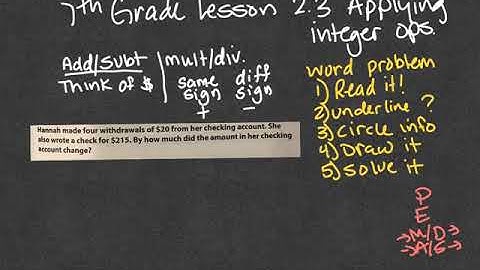 7th Grade Lesson 2.3 Applying
integer ops.
Add/Subt
Think of $
mult/div.
same sign
+
diff sign
−
word problem
1) Read it!
2) underline ?
3) circle info
4) Draw it
5) Solve it
Hannah made four withdrawals of $20 from her checking account. She
also wrote a check for $215. By how much did the amount in her checking
account change?
P
E
→M/D→
→A/S→